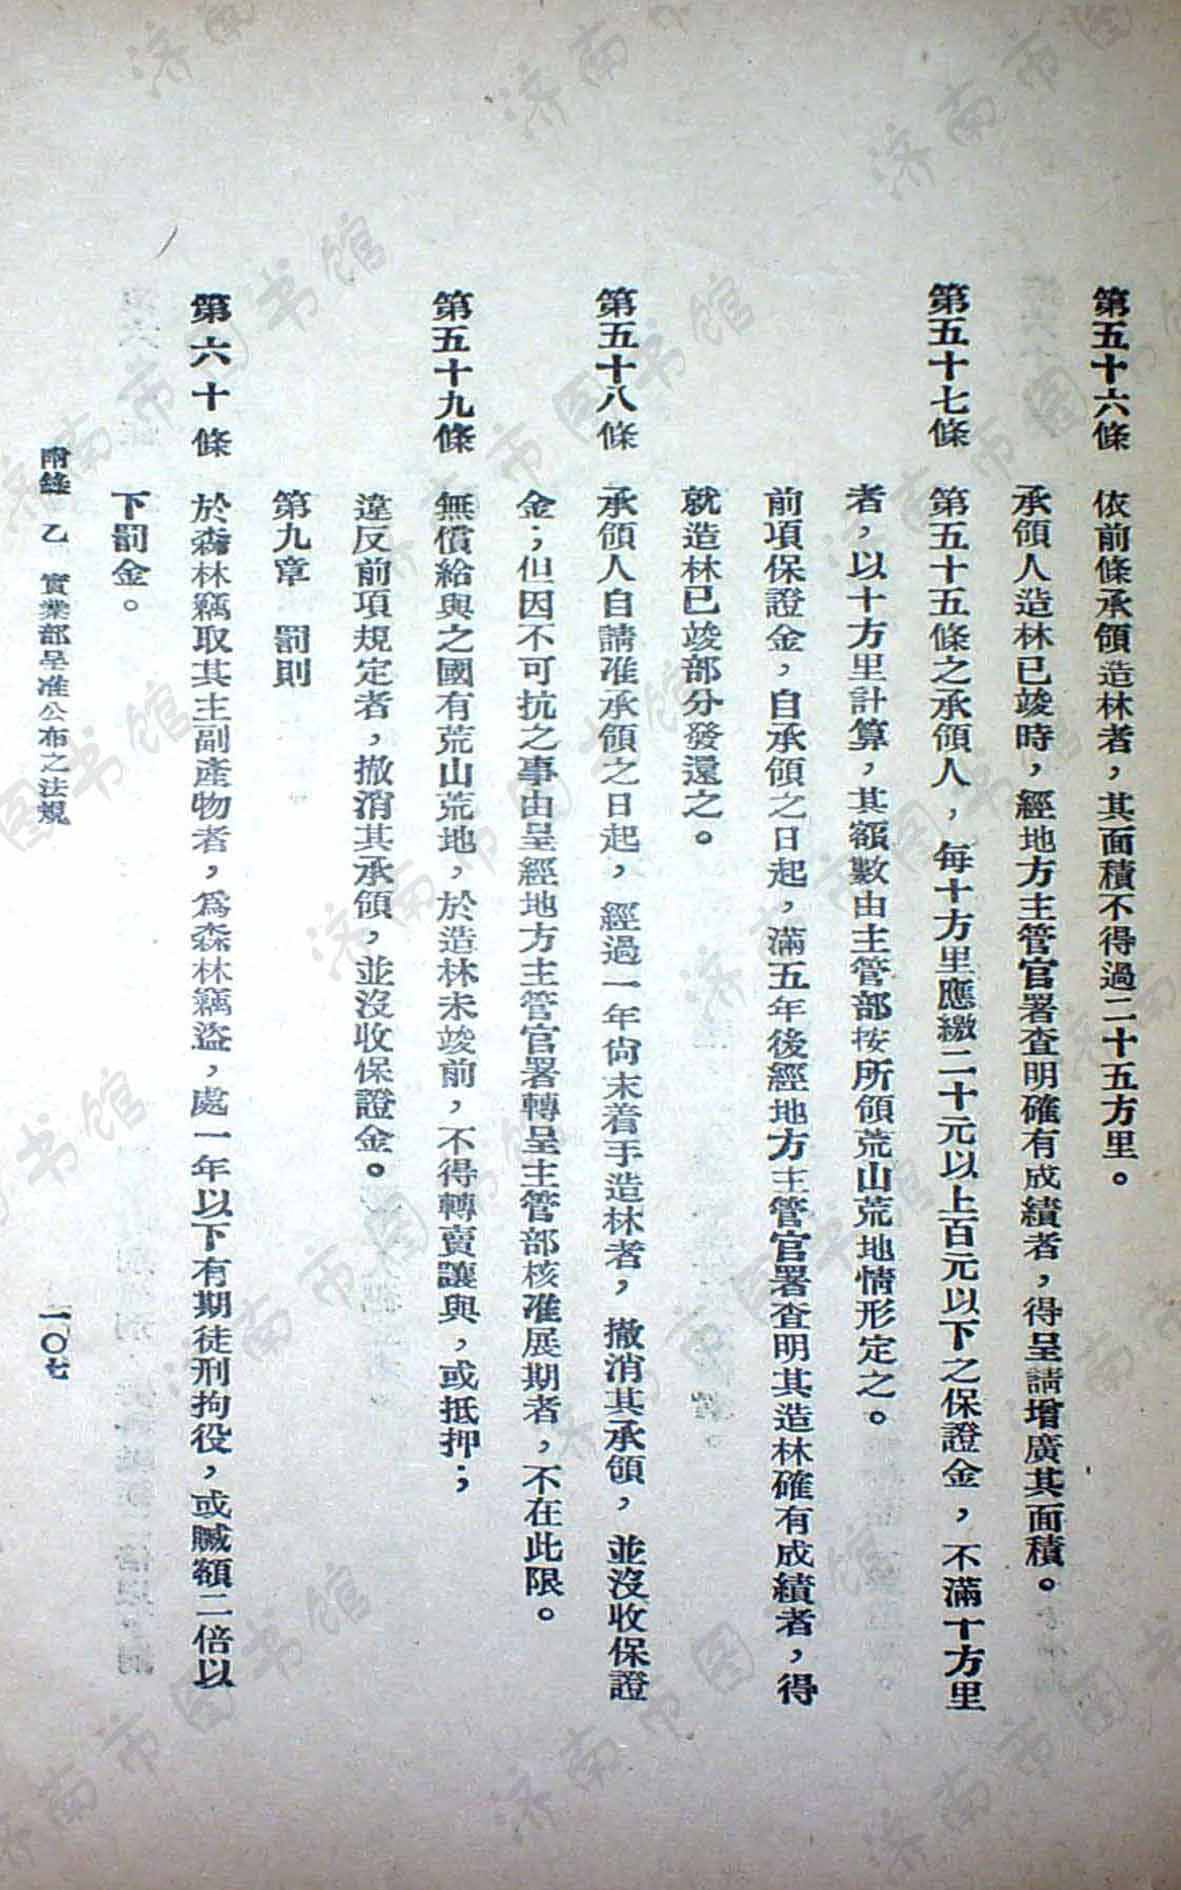 第五十六條　依前條承領造林者，其面積不得過二十五方里。
承領人造林已竣時，經地方主管官署查明確有成績者，得呈請增廣其面積。
第五十七條　第五十五條之承領人，每十方里應繳二十元以上百元以下之保證金，不滿十方里
者，以十方里計算，其額數由主管部按所領荒山荒地情形定之。
前項保證金，自承領之日起，滿五年後經地方主管官署查明其造林確有成績者，得
就造林已竣部分發還之。
第五十八條　承領人自請准承領之日起，經過一年尙未着手造林者，撤消其承領，並沒收保證
金；但因不可抗之事由呈經地方主管官署轉呈主管部核准展期者，不在此限。
第五十九條　無償給與之國有荒山荒地，於造林未竣前，不得轉賣讓與，或抵押；
違反前項規定者，撤消其承領，並沒收保證金。
第九章　罰則
第六十條　於森林竊取其主副產物者，爲森林竊盜，處一年以下有期徒刑拘役，或贓額二倍以
下罰金。
附錄　乙　實業部呈准公布之法規　一〇七
济南市图书馆